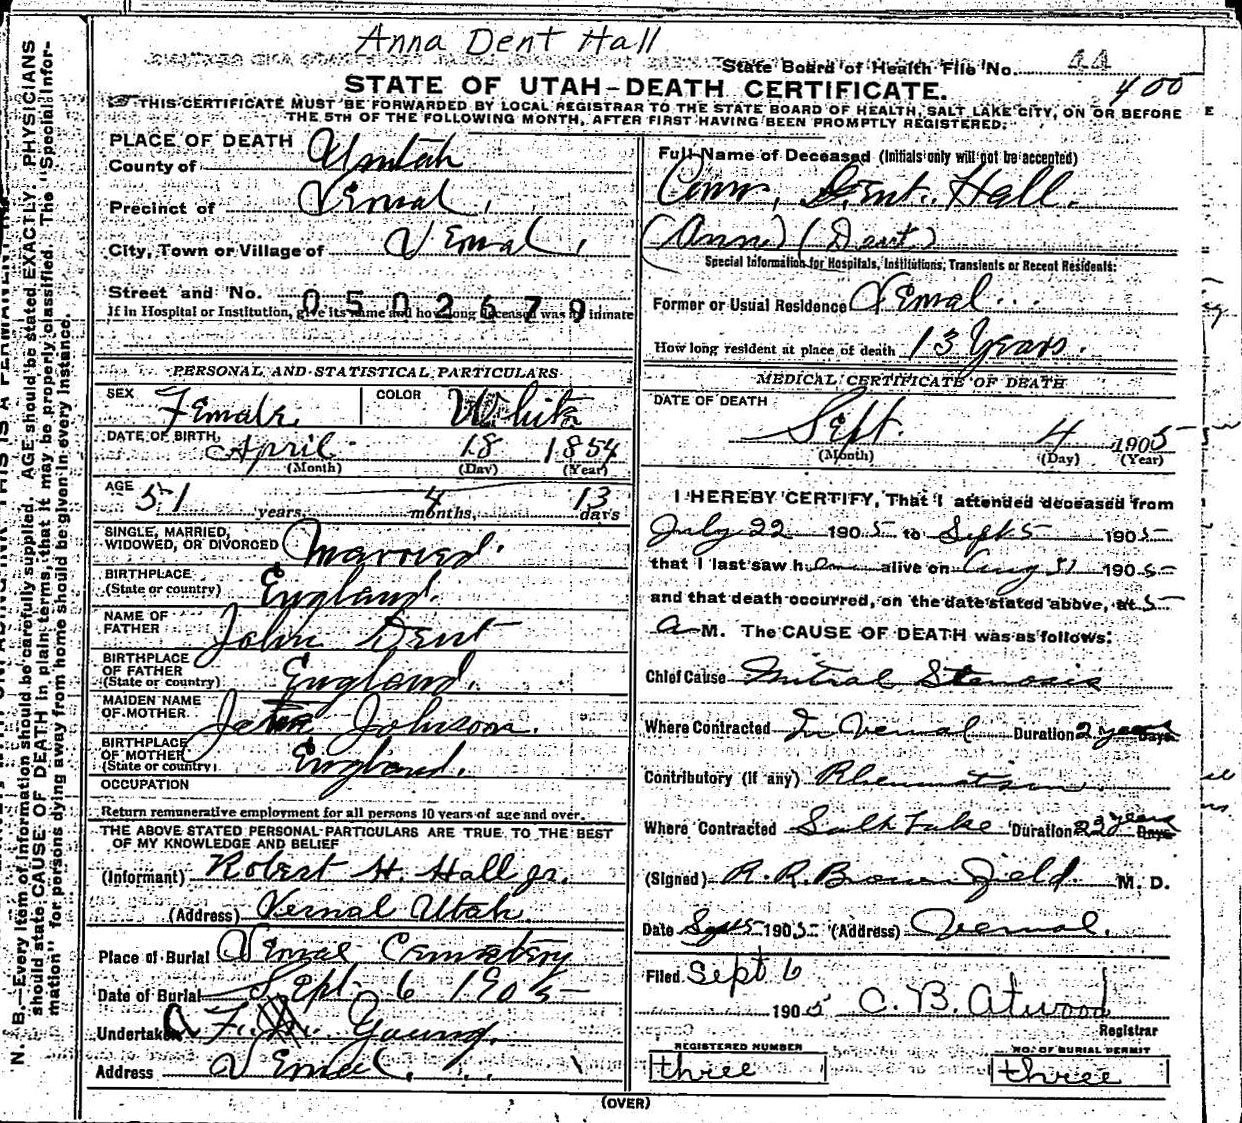 Anna Dent Hall
State Board of Health File No. 44
STATE OF UTAH-DEATH CERTIFICATE.
400
THIS CERTIFICATE MUST BE FORWARDED BY LOCAL REGISTRAR TO THE STATE BOARD OF HEALTH, SALT LAKE CITY, ON OR BEFORE
THE 5TH OF THE FOLLOWING MONTH, AFTER FIRST HAVING BEEN PROMPTLY REGISTERED.
PLACE OF DEATH
County of Uintah
Precinct of Vernal
City, Town or Village of Vernal
Street and No. 0502679
If in Hospital or Institution, give its name and how long deceased was an inmate
PERSONAL AND STATISTICAL PARTICULARS
SEX Female COLOR White
DATE OF BIRTH April 18 1854
(Month) (Day) (Year)
AGE 51 years, 4 months, 13 days
SINGLE, MARRIED,
WIDOWED, OR DIVORCED Married.
BIRTHPLACE
(State or country) England.
NAME OF
FATHER John Dent
BIRTHPLACE
OF FATHER
(State or country) England.
MAIDEN NAME
OF MOTHER Johnson.
BIRTHPLACE
OF MOTHER
(State or country) England.
OCCUPATION
Return remunerative employment for all persons 10 years of age and over.
THE ABOVE STATED PERSONAL PARTICULARS ARE TRUE TO THE BEST
OF MY KNOWLEDGE AND BELIEF
(Informant) Robert H. Hall Jr.
(Address) Vernal Utah.
Place of Burial Vernal Cemetery
Date of Burial Sept. 6 1905
Undertaker Young.
Address Vernal.
Full Name of Deceased (Initials only will not be accepted)
Ann, Dent. Hall.
(Ann) (Dent)
Special Information for Hospitals, Institutions, Transients or Recent Residents:
Former or Usual Residence Vernal.
How long resident at place of death 13 Years.
MEDICAL CERTIFICATE OF DEATH
DATE OF DEATH
Sept. 4 1905
(Month) (Day) (Year)
I HEREBY CERTIFY, That I attended deceased from
July 22 1905 to Sept 5 1905
that I last saw her alive on Aug 31 1905
and that death occurred, on the date stated above, at 5
a M. The CAUSE OF DEATH was as follows:
Chief Cause Mitral Stenosis
Where Contracted In Vernal Duration 2 years Days
Contributory (if any) Rheumatism
Where Contracted Salt Lake Duration 23 years Days
(Signed) R. R. Brownfield. M. D.
Date Sept 5 1905 (Address) Vernal.
Filed Sept 6
1905 C. B. Atwood
Registrar
REGISTERED NUMBER NO. OF BURIAL PERMIT
three three
(OVER)
N. B.—Every item of information should be carefully supplied. AGE should be stated EXACTLY. PHYSICIANS
should state CAUSE OF DEATH in plain terms, that it may be properly classified. The "Special Infor-
mation" for persons dying away from home should be given in every instance.